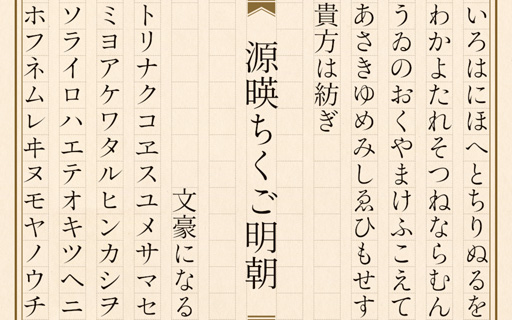 いろはにほへとちりぬるを
わかよたれそつねならむん
うゐのおくやまけふこえて
あさきゆめみしゑひもせす
貴方は紡ぎ
源暎ちくご明朝
文豪になる
トリナクコヱスユメサマセ
ミヨアケワタルヒンカシヲ
ソライロハエテオキツヘニ
ホフネムレヰヌモヤノウチ